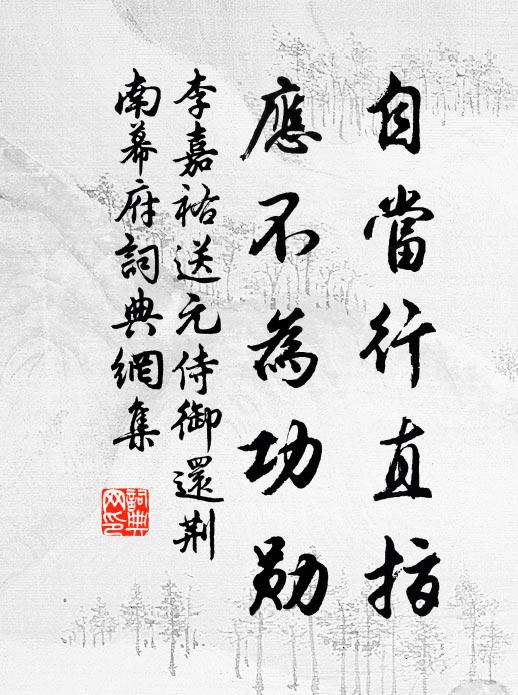 自當行直指
應不為功勛
李嘉祐送元侍御還荆
南幕府詞典網集
詞典
网印